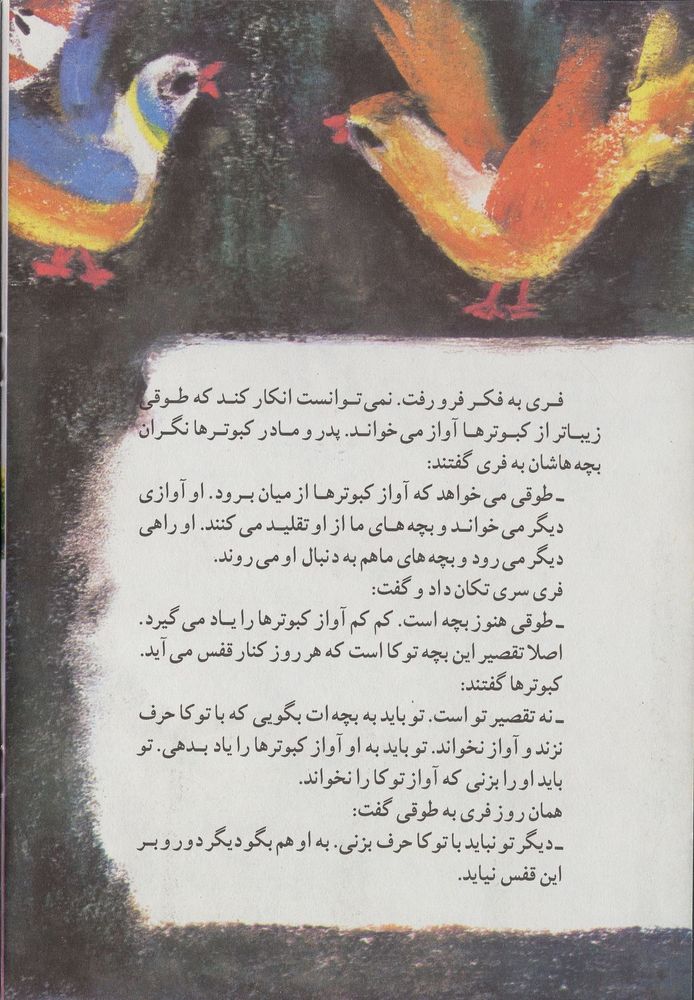 فری به فکر فرو رفت. نمی‌توانست انکار کند که طوقی
زیباتر از کبوترها آواز می‌خواند. پدر و مادر کبوترها نگران
بچه‌هاشان به فری گفتند:
ـ طوقی می‌خواهد که آواز کبوترها از میان برود. او آوازی
دیگر می‌خواند و بچه‌های ما از او تقلید می‌کنند. او راهی
دیگر می‌رود و بچه‌های ماهم به دنبال او می‌روند.
فری سری تکان داد و گفت:
ـ طوقی هنوز بچه است. کم کم آواز کبوترها را یاد می‌گیرد.
اصلا تقصیر این بچه توکا است که هر روز کنار قفس می‌آید.
کبوترها گفتند:
ـ نه تقصیر تو است. تو باید به بچه‌ات بگویی که با توکا حرف
نزند و آواز نخواند. تو باید به او آواز کبوترها را یاد بدهی. تو
باید او را بزنی که آواز توکا را نخواند.
همان روز فری به طوقی گفت:
ـ دیگر تو نباید با توکا حرف بزنی. به او هم بگو دیگر دور و بر
این قفس نیاید.